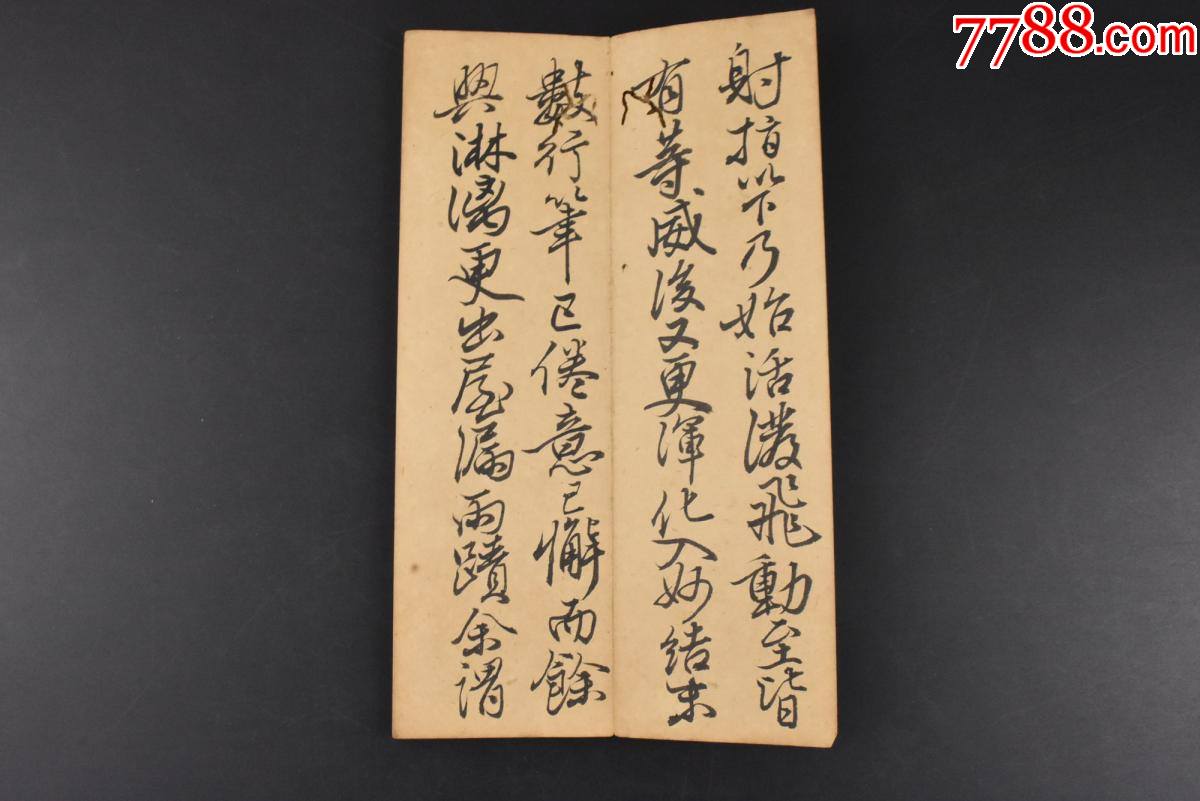 7788.com
射指以下乃始活潑飛動至皆
有等威後又更渾化入妙結末
數行筆已倦意已懈而餘
興淋漓更出屋漏雨蹟余謂